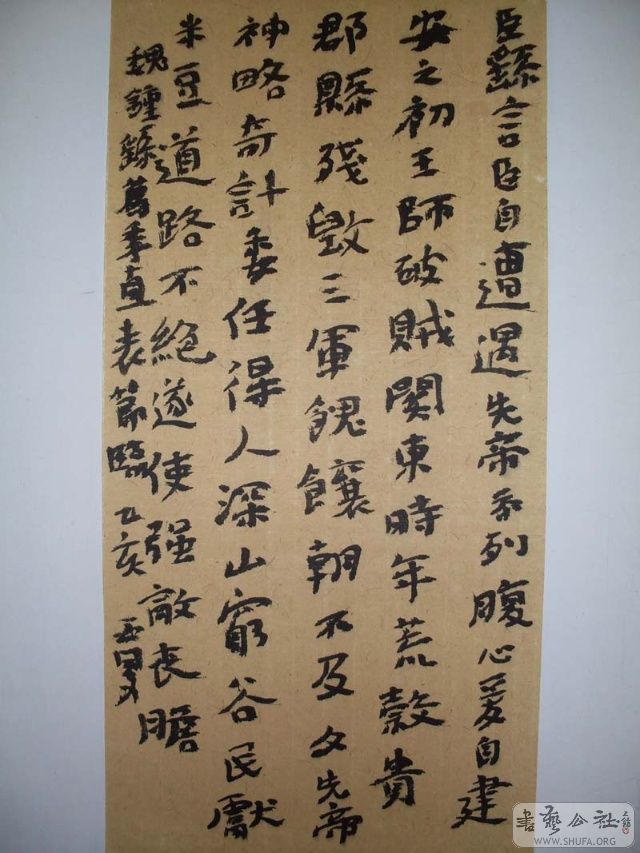 臣繇言臣自遭遇先帝忝列腹心爰自建
安之初王師破賊関東時年荒穀貴
郡縣殘毀三軍餽饟朝不及夕先帝
神略奇計委任得人深山窮谷民獻
米豆道路不絕遂使强敵丧膽
魏鍾繇薦季直表節臨乙亥
書藝公社
WWW.SHUFA.ORG